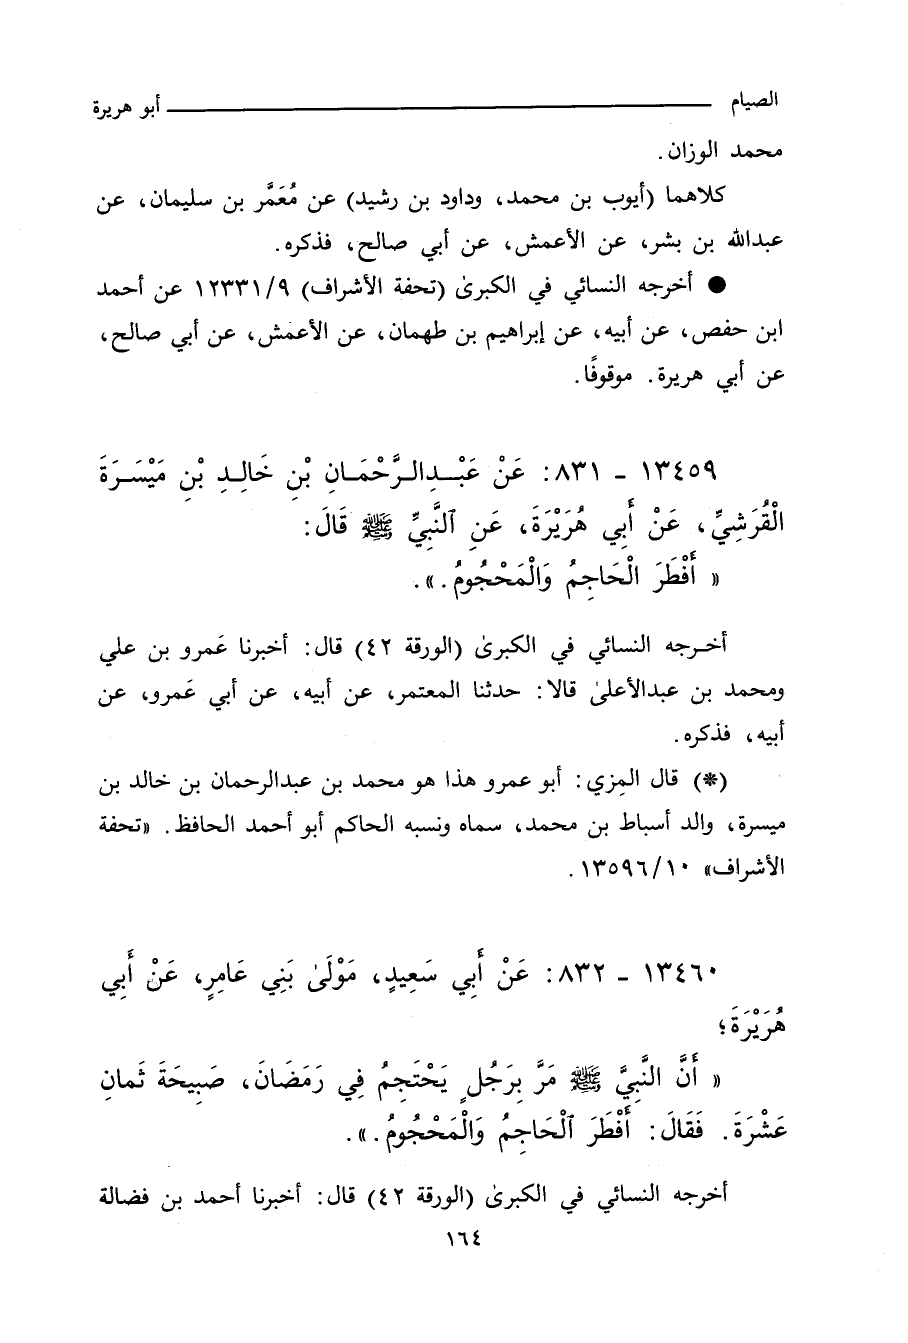 الصيام ــــــــــ أبو هريرة
محمد الوزان .
كلاهما (أيوب بن محمد، وداود بن رشيد) عن مُعَمَّر بن سليمان، عن
عبدالله بن بشر، عن الأعمش، عن أبي صالح، فذكره.
● أخرجه النسائي في الكبرىٰ (تحفة الأشراف) ١٢٣٣١/٩ عن أحمد
ابن حفص، عن أبيه، عن إبراهيم بن طهمان، عن الأعمش، عن أبي صالح،
عن أبي هريرة. موقوفًا.
١٣٤٥٩ - ٨٣١: عَنْ عَبْدِالرَّحْمَانِ بْنِ خَالِدِ بْنِ مَيْسَرَةَ
الْقُرَشِيِّ، عَنْ أَبِي هُرَيْرَةَ، عَنِ ٱلنَّبِيِّ ﷺ قَالَ:
« أَفْطَرَ الْحَاجِمُ وَالْمَحْجُومُ.».
أخرجه النسائي في الكبرىٰ (الورقة ٤٢) قال: أخبرنا عَمرو بن علي
ومحمد بن عبدالأعلىٰ قالا: حدثنا المعتمر، عن أبيه، عن أبي عَمرو، عن
أبيه، فذكره.
(*) قال المِزي: أبو عمرو هذا هو محمد بن عبدالرحمان بن خالد بن
ميسرة، والد أسباط بن محمد، سماه ونسبه الحاكم أبو أحمد الحافظ. «تحفة
الأشراف» ١٣٥٩٦/١٠.
١٣٤٦٠ - ٨٣٢: عَنْ أَبِي سَعِيدٍ، مَوْلَىٰ بَنِي عَامِرٍ، عَنْ أَبِي
هُرَيْرَةَ؛
« أَنَّ النَّبِيَّ ﷺ مَرَّ بِرَجُلٍ يَحْتَجِمُ فِي رَمَضَانَ، صَبِيحَةَ ثَمانِ
عَشْرَةَ. فَقَالَ: أَفْطَرَ ٱلْحَاجِمُ وَالْمَحْجُومُ.».
أخرجه النسائي في الكبرىٰ (الورقة ٤٢) قال: أخبرنا أحمد بن فضالة
١٦٤